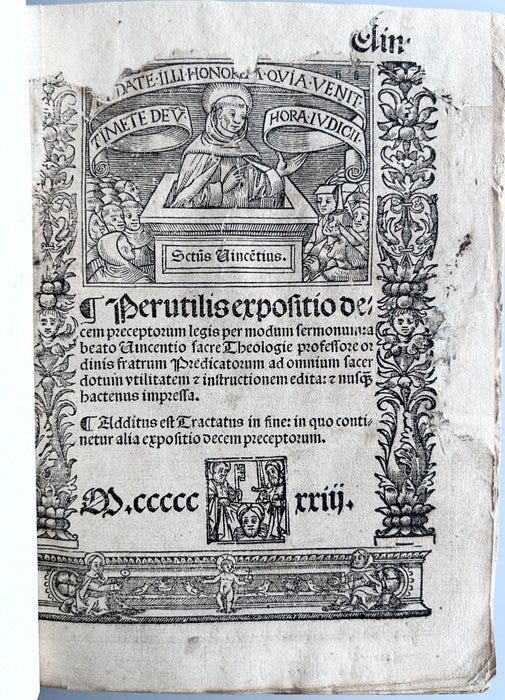 Clin
DATE·ILLI·HONOREM·QVIA·VENIT·
TIMETE DEṼ·
HORA·IVDICII·
Sctũs Uincẽtius.
¶ Perutilis expositio de⸗
cem preceptorum legis per modum sermonum a
beato Uincentio sacre Theologie professore or
dinis fratrum Predicatorum ad omnium sacer
dotum vtilitatem ⁊ instructionem edita: ⁊ nusq̃
hactenus impressa.
¶ Additus est Tractatus in fine: in quo conti⸗
netur alia expositio decem preceptorum.
M.ccccc xxiij.